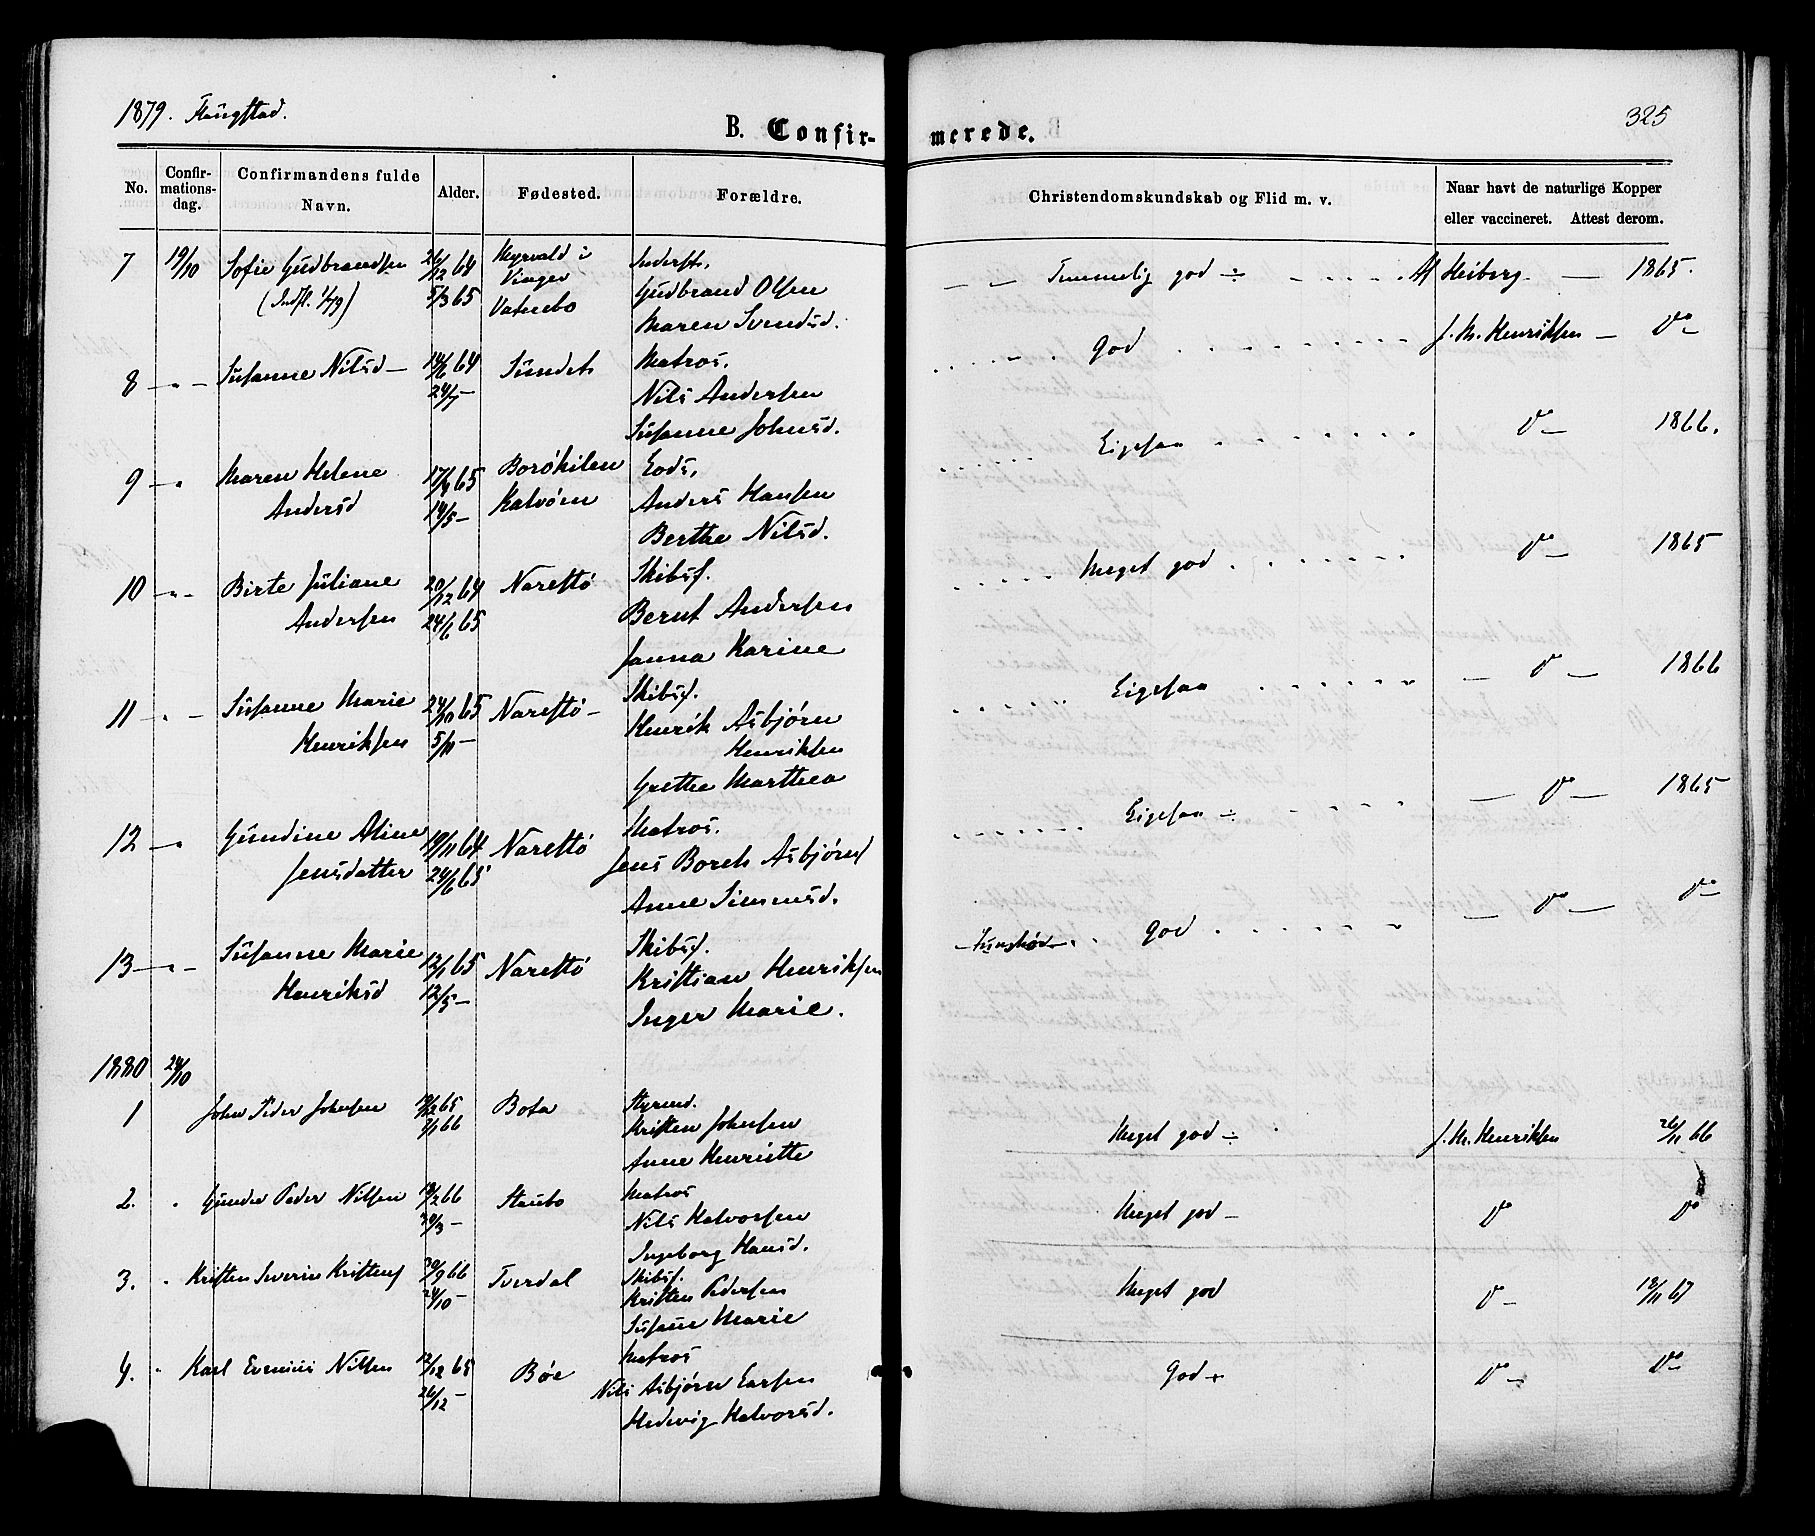 1879. Flangstad.
325
B. Confirmerede.
No. Confirmationsdag. Confirmandens fulde Navn. Alder. Fødested. Forældre. Christendomskundskab og Flid m. v. Naar havt de naturlige Kopper eller vaccineret. Attest derom.
7 19/10 Sofie Gudbrandsen 26/12 64 i Inderst. Temmelig god ÷ Heiberg — 1865.
(Indfl. 1/79) 5/3 65 Vinger Gudbrand Olsen
Vatnebo Maren Svendsd.
8 — " — Susanne Nilsd — 14/6 64 Sundet Matros. God J. M. Henriksen — Do —
24/7 — Nils Andersen
Susanne Johnsd.
9 — " Maren Helene 17/4 65 Borøkilen Lods, Ligesaa Do — 1866.
Andersd 14/5 — Kalvøen Anders Hansen
Berthe Nilsd.
10 — " — Birte Juliane 20/12 64 Narestø Skibsf. Meget god Do — 1865
Andersen 24/6 65 Bernt Andersen
Janna Karine
11 — " — Susanne Marie 24/10 65 Narestø — Skibsf. Ligesaa — Do — 1866
Henriksen 5/11 — Henrik Asbjørn
Henriksen
Grethe Marthea
12 — " Gundine Aline 19/11 64 Narestø Matros. Ligesaa ÷ — Do — 1865
Jensdatter 24/6 65 Jens Borch Asbjørns
Anne Simonsd.
13 — " — Susanne Marie 12/1 65 Narestø Skibsf. God — Do — Do —
Henriksd 12/5 — Kristian Henriksen
Inger Marie.
1880 24/10
1 John Peder Johnsen 12/12 65 Bota Styrmd. Meget god ÷ J. M. Henriksen 26/11 66
7/1 66 Kristen Johnsen
Anne Henriette
2. " Gunder Peder Nilsen 18/2 66 Staubo Matros Meget god — Do Do
30/3 — Nils Halvorsen
Ingeborg Hansd.
3. " Kristen Severin Kristens 30/9 66 Tverdal Skibsf. Meget god Do — 12/11 67
24/10 — Kristen Pedersen
Susanne Marie
4. " Karl Evenius Nilsen 12/12 65 Bøe Matros God + Do — Do —
26/12 — Nils Asbjørn Larsen
Hedevig Halvorsd.